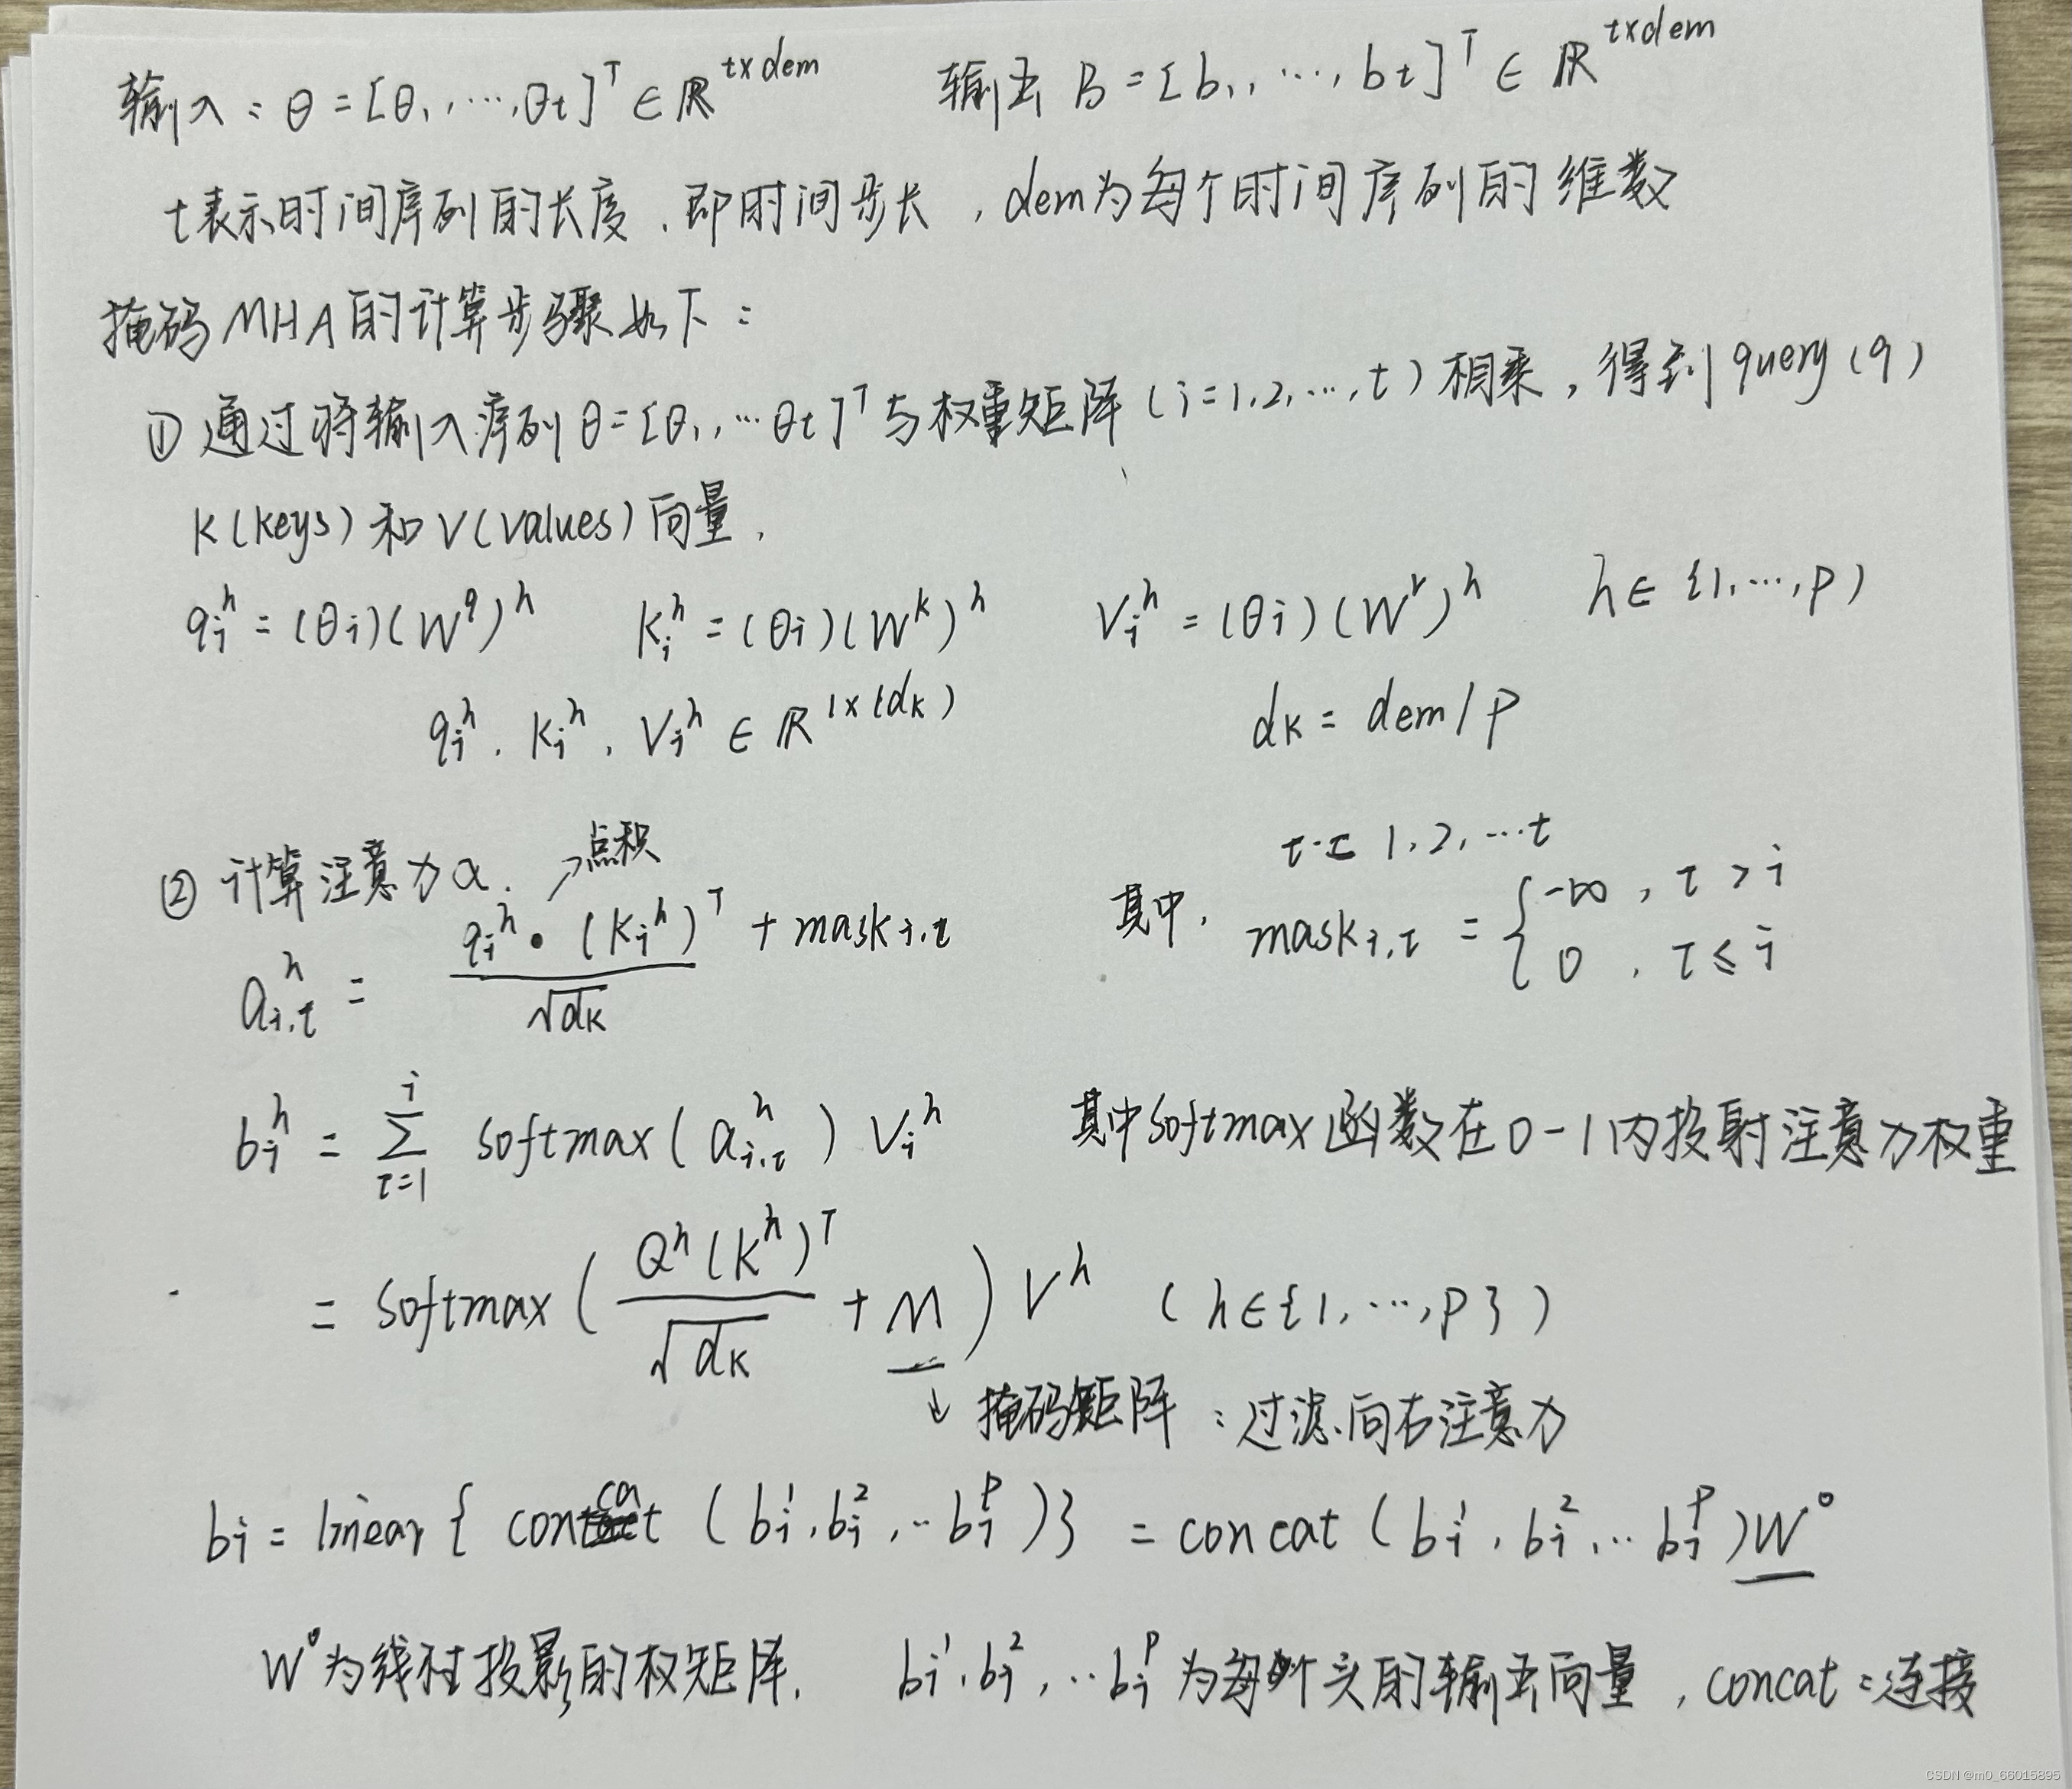 输入：θ = [θ₁, ⋯, θt]ᵀ ∈ ℝ^{t×dem}  输出 B = [b₁, ⋯, bt]ᵀ ∈ ℝ^{t×dem}
t表示时间序列的长度，即时间步长，dem为每个时间序列的维数
掩码MHA的计算步骤如下：
① 通过将输入序列θ=[θ₁, ⋯θt]ᵀ与权重矩阵（i=1,2,⋯,t）相乘，得到query(q)
K(keys)和V(values)向量.
q_i^h = (θi)(W^q)^h  K_i^h = (θi)(W^k)^h  V_i^h = (θi)(W^v)^h  h∈{1,⋯,p)
q_i^h, K_i^h, V_i^h ∈ ℝ^{1×(dk)}  dk = dem/p
② 计算注意力α.  ↗点积
τ = 1,2,⋯t
a_{i,τ}^h = q_i^h • (K_i^h)ᵀ / √dk + mask_{i,τ}  其中, mask_{i,τ} = { -∞, τ > i
0, τ ≤ i
b_i^h = Σ_{τ=1}^{i} softmax(a_{i,τ}^h) V_i^h  其中softmax函数在0-1内投射注意力权重
= softmax( Q^h(K^h)ᵀ / √dk + M ) V^h （h∈{1,⋯,p}）
↓ 掩码矩阵：过滤向右注意力
bi = linear{ concat (b_i^1, b_i^2, ‥b_i^p)} = concat (b_i^1, b_i^2, ‥b_i^p)W^o
W^o为线性投影的权矩阵.  b_i^1, b_i^2, ‥b_i^p为每个头的输出向量, concat：连接
CSDN @m0_66015895